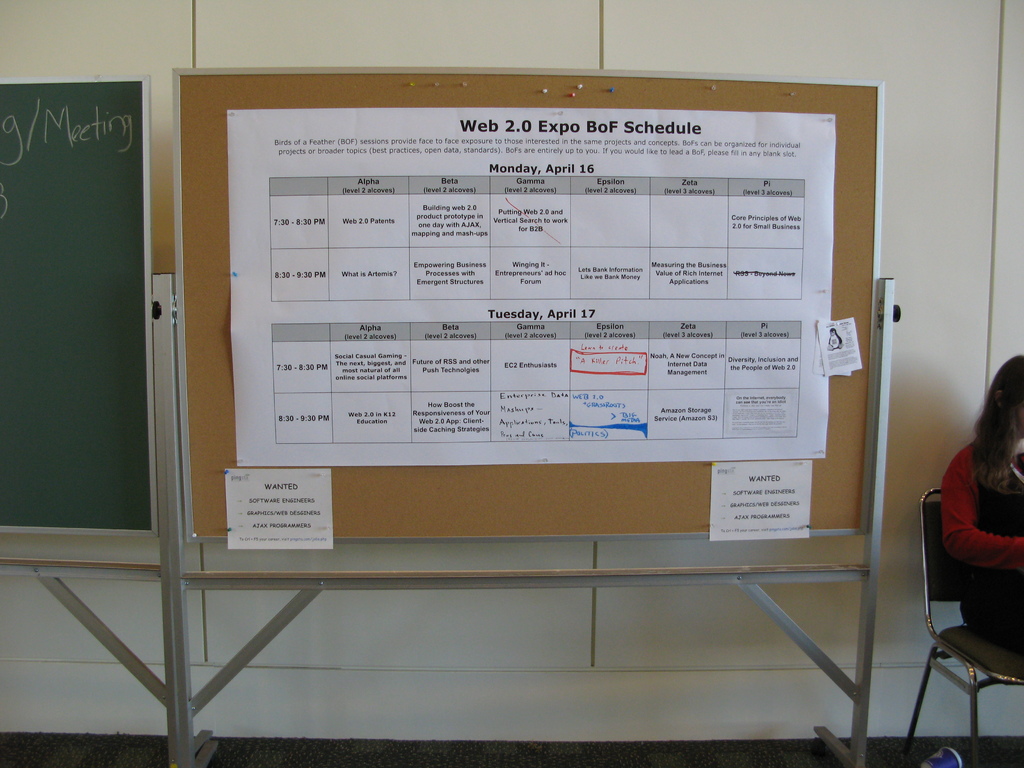 g/Meeting
Web 2.0 Expo BoF Schedule
Birds of a Feather (BOF) sessions provide face to face exposure to those interested in the same projects and concepts. BoFs can be organized for individual
projects or broader topics (best practices, open data, standards). BoFs are entirely up to you. If you would like to lead a BoF, please fill in any blank slot.
Monday, April 16
Alpha Beta Gamma Epsilon Zeta Pi
(level 2 alcoves) (level 2 alcoves) (level 2 alcoves) (level 2 alcoves) (level 3 alcoves) (level 3 alcoves)
7:30 - 8:30 PM
Web 2.0 Patents
Building web 2.0
product prototype in
one day with AJAX,
mapping and mash-ups
Putting Web 2.0 and
Vertical Search to work
for B2B
Core Principles of Web
2.0 for Small Business
8:30 - 9:30 PM
What is Artemis?
Empowering Business
Processes with
Emergent Structures
Winging It -
Entrepreneurs' ad hoc
Forum
Lets Bank Information
Like we Bank Money
Measuring the Business
Value of Rich Internet
Applications
RSS - Beyond News
Tuesday, April 17
Alpha Beta Gamma Epsilon Zeta Pi
(level 2 alcoves) (level 2 alcoves) (level 2 alcoves) (level 2 alcoves) (level 3 alcoves) (level 3 alcoves)
7:30 - 8:30 PM
Social Casual Gaming -
The next, biggest, and
most natural of all
online social platforms
Future of RSS and other
Push Technolgies
EC2 Enthusiasts
Learn to create
"A Killer Pitch"
Noah, A New Concept in
Internet Data
Management
Diversity, Inclusion and
the People of Web 2.0
8:30 - 9:30 PM
Web 2.0 in K12
Education
How Boost the
Responsiveness of Your
Web 2.0 App: Client-
side Caching Strategies
Enterprise Data
Mashups -
Applications, Tools,
Pros and Cons
WEB 2.0
GRASSROOTS
>
(POLITICS)
Amazon Storage
Service (Amazon S3)
On the internet, everybody
can see that you're an idiot
WANTED
- SOFTWARE ENGINEERS
- GRAPHICS/WEB DESIGNERS
- AJAX PROGRAMMERS
WANTED
- SOFTWARE ENGINEERS
- GRAPHICS/WEB DESIGNERS
- AJAX PROGRAMMERS